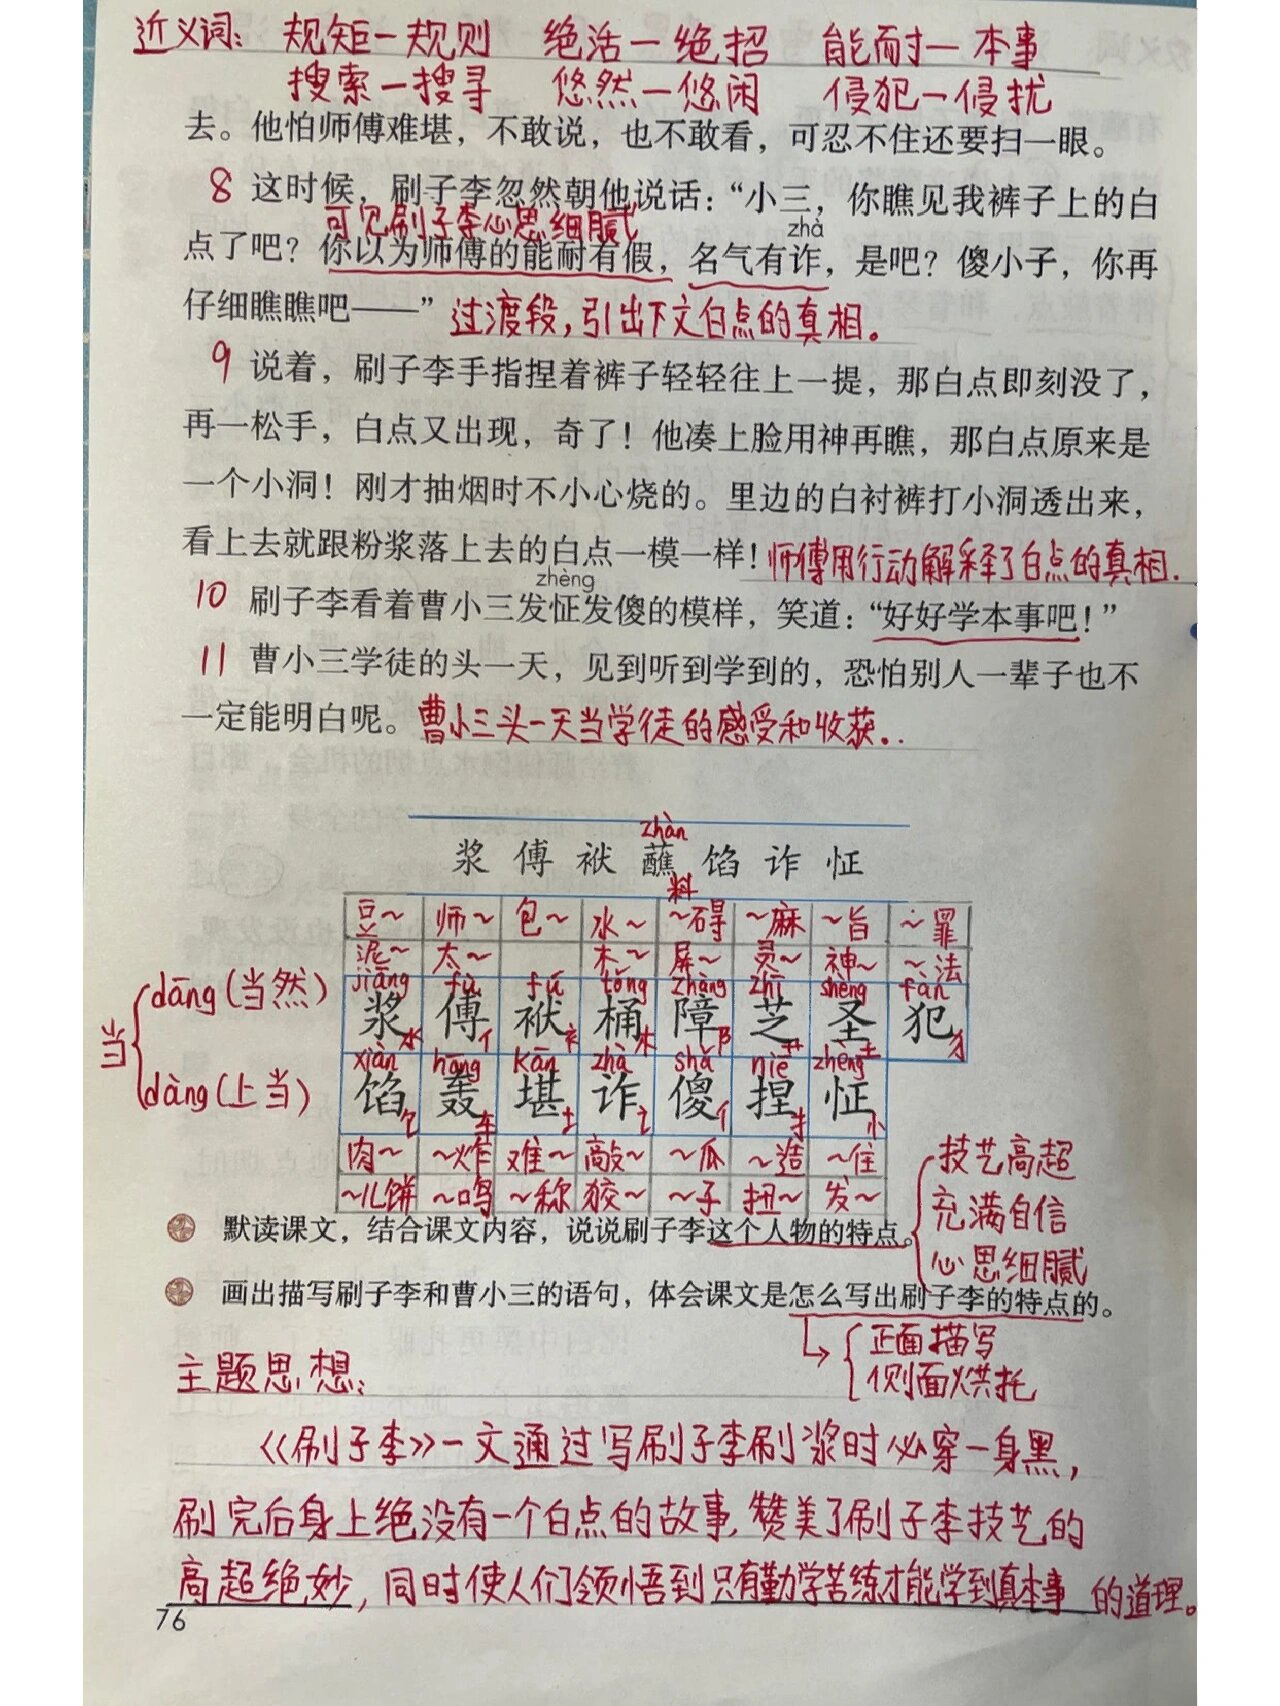 近义词：规矩—规则 绝活—绝招 能耐—本事
搜索—搜寻 悠然—悠闲 侵犯—侵扰
去。他怕师傅难堪，不敢说，也不敢看，可忍不住还要扫一眼。
8 这时候，刷子李忽然朝他说话：“小三，你瞧见我裤子上的白
可见刷子李心思细腻
zhà
点了吧？你以为师傅的能耐有假，名气有诈，是吧？傻小子，你再
仔细瞧瞧吧——” 过渡段，引出下文白点的真相。
9 说着，刷子李手指捏着裤子轻轻往上一提，那白点即刻没了，
再一松手，白点又出现，奇了！他凑上脸用神再瞧，那白点原来是
一个小洞！刚才抽烟时不小心烧的。里边的白衬裤打小洞透出来，
看上去就跟粉浆落上去的白点一模一样！师傅用行动解释了白点的真相.
zhèng
10 刷子李看着曹小三发怔发傻的模样，笑道：“好好学本事吧！”
11 曹小三学徒的头一天，见到听到学到的，恐怕别人一辈子也不
一定能明白呢。曹小三头一天当学徒的感受和收获。
zhàn
浆 傅 袱 蘸 馅 诈 怔
料
豆～ 师～ 包～ 水～ ～碍 ～麻 ～旨 ～罪
泥～ 太～ 木～ 屏～ 灵～ 神～ ～法
jiāng fù fú tǒng zhàng zhī shèng fàn
浆 傅 袱 桶 障 芝 圣 犯
水 亻 衤 木 阝 艹 土 犭
xiàn hōng kān zhà shǎ niē zhèng
馅 轰 堪 诈 傻 捏 怔
饣 车 土 讠 亻 扌 忄
肉～ ～炸 难～ 敲～ ～瓜 ～造 ～住
～儿饼 ～鸣 ～称 狡～ ～子 扭～ 发～
当
dāng(当然)
dàng(上当)
默读课文，结合课文内容，说说刷子李这个人物的特点。
技艺高超
充满自信
心思细腻
画出描写刷子李和曹小三的语句，体会课文是怎么写出刷子李的特点的。
正面描写
侧面烘托
主题思想：
《刷子李》一文通过写刷子李刷浆时必穿一身黑，
刷完后身上绝没有一个白点的故事，赞美了刷子李技艺的
高超绝妙，同时使人们领悟到只有勤学苦练才能学到真本事的道理。
76